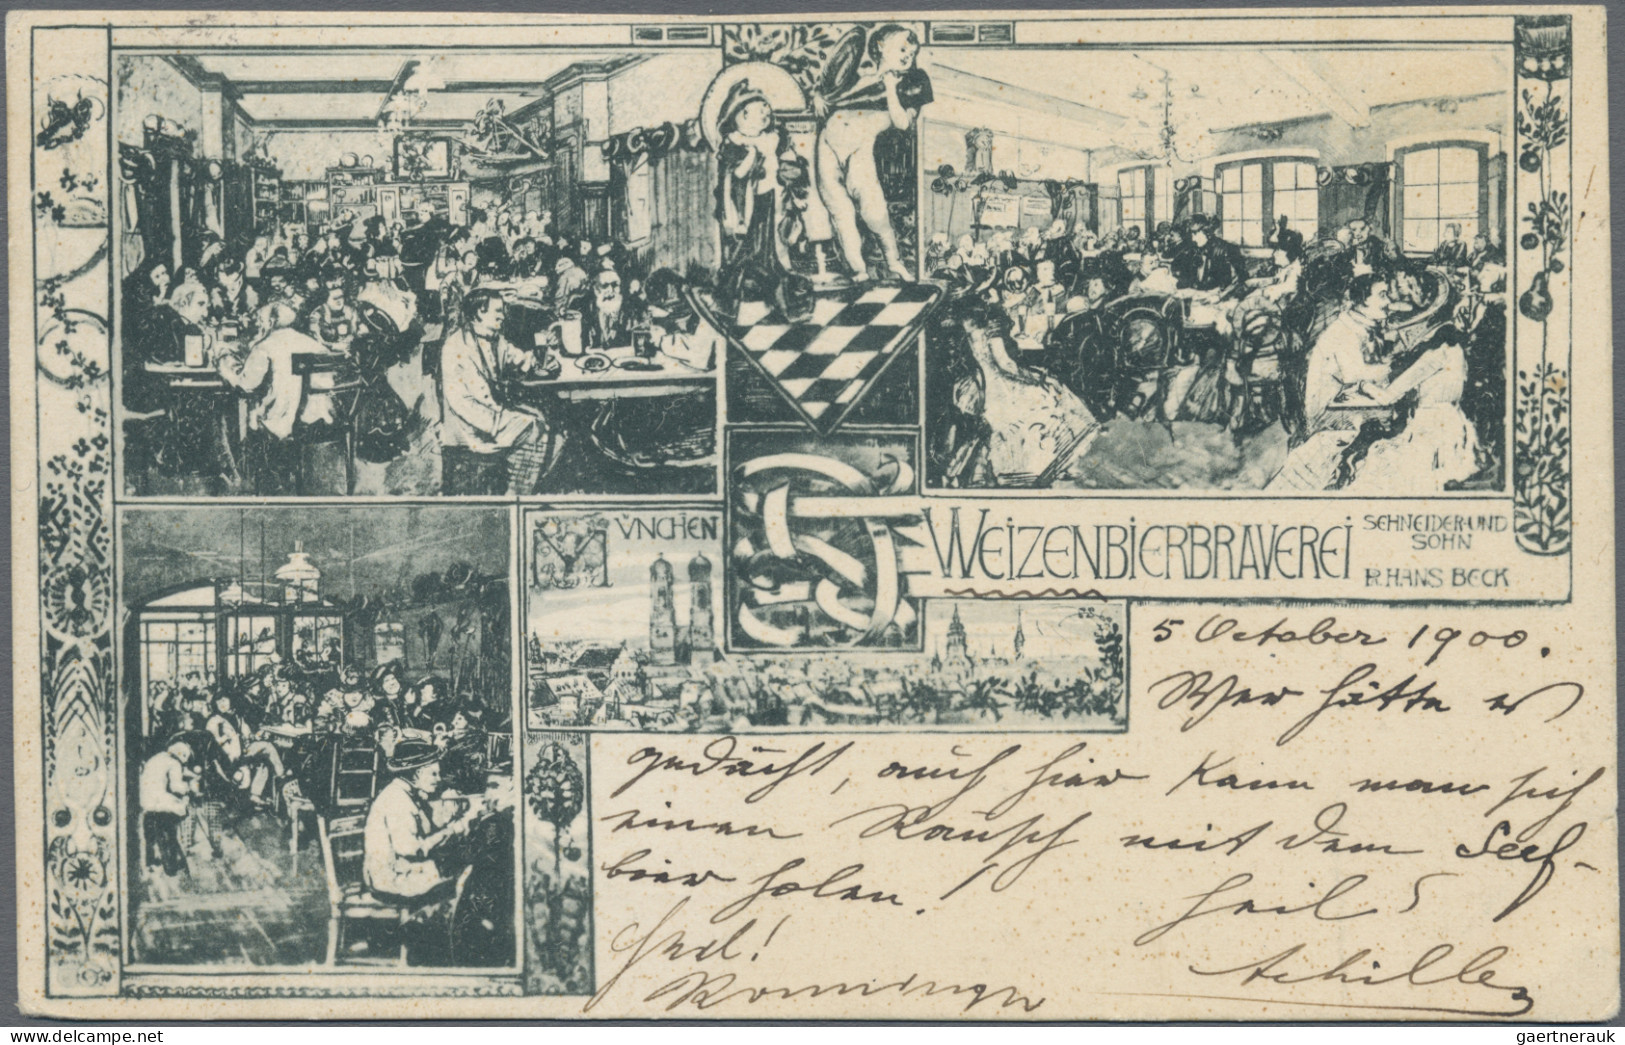 MÜNCHEN
WEIZENBIERBRAVEREI
SCHNEIDER UND
SOHN
P. HANS BECK
5 October 1900.
Wer hätte es
gedacht, auch hier kann man sich
einen Rausch mit dem
bier holen!
Heil!
Heil!
Achille
gaertnerauk